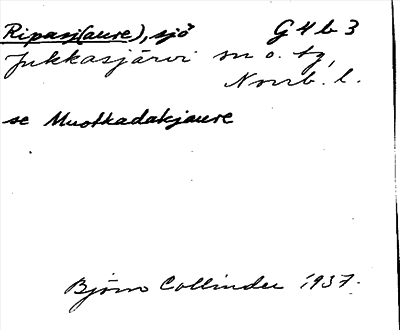 Ripasj(aure), sjö G4b3
Jukkasjärvi sn o. tg,
Norrb. l.
se Muotkadakjaure
Björn Collinder 1937.